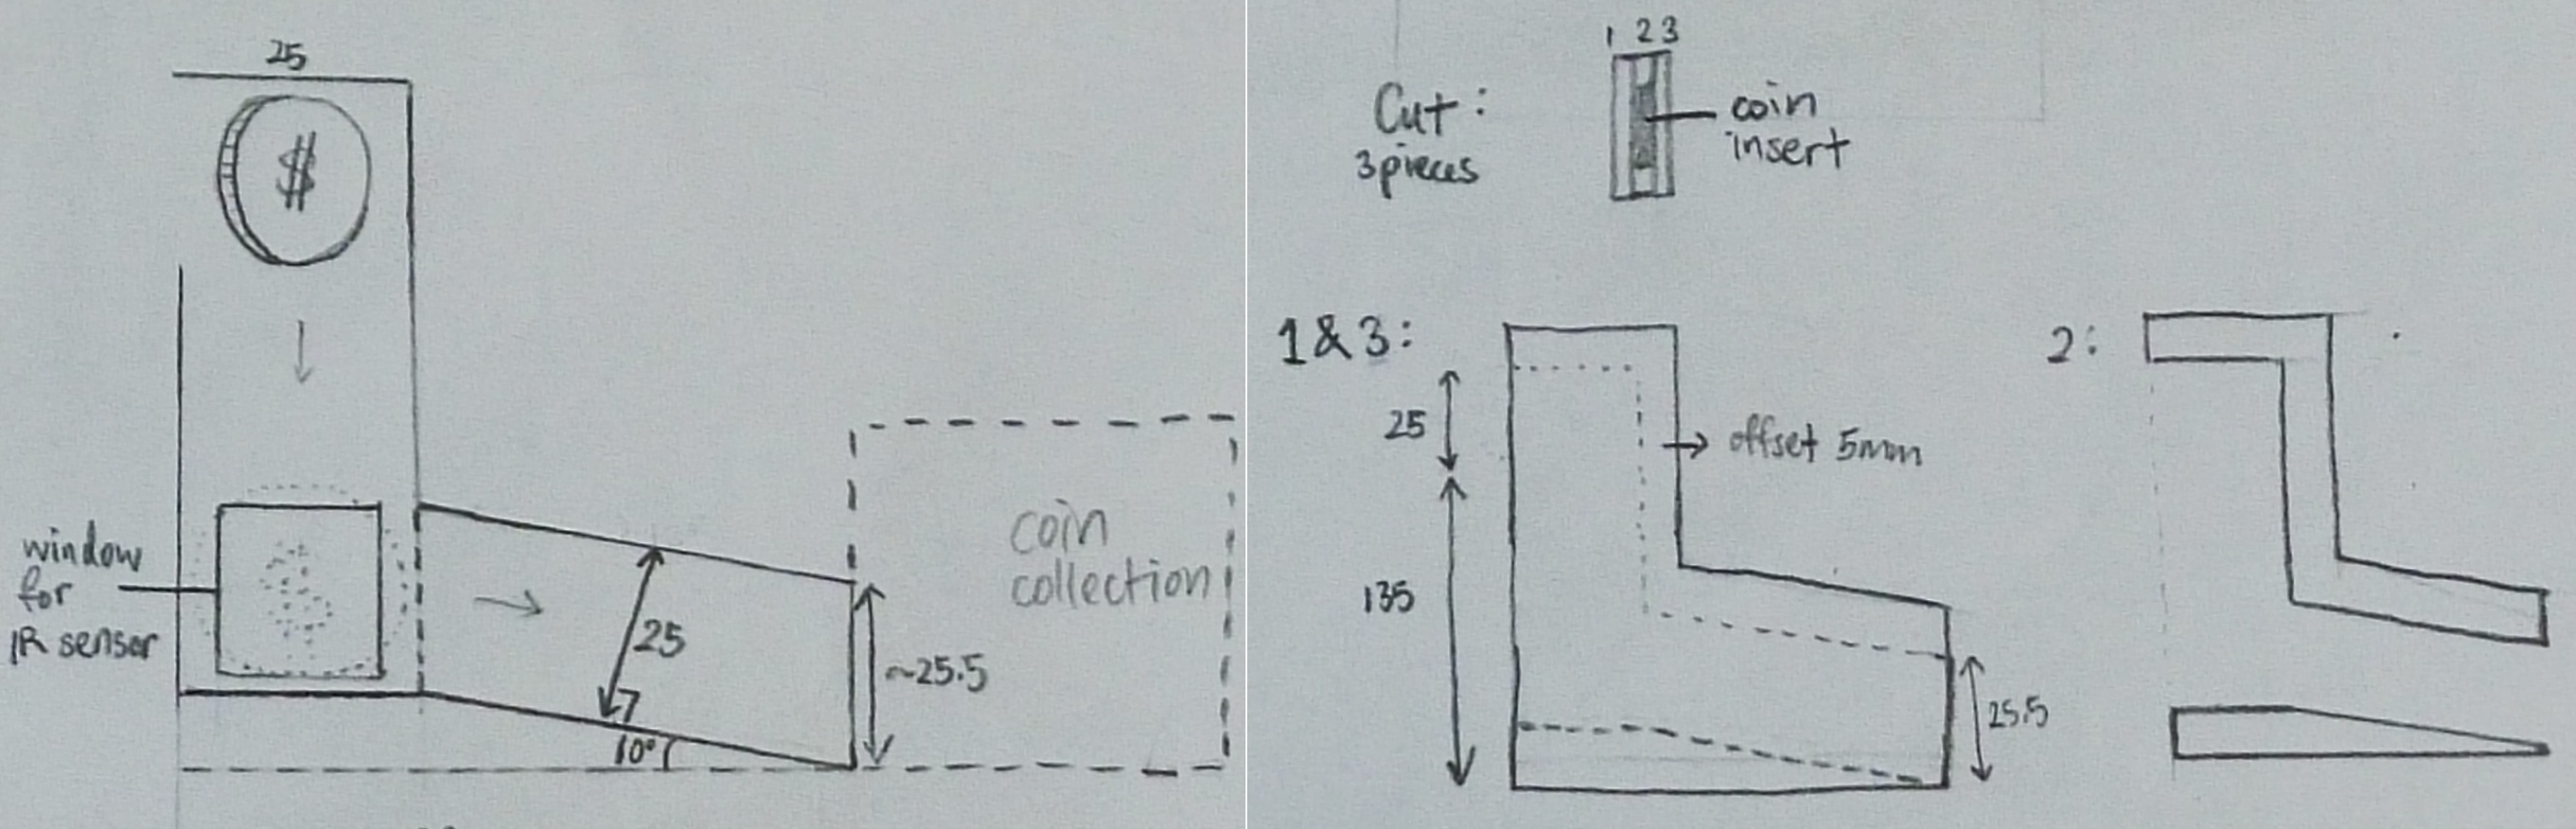 25
$
window
for
IR sensor
25
10°
~25.5
coin
collection
1 2 3
Cut:
3 pieces
coin
insert
1 & 3:
25
offset 5mm
135
25.5
2: